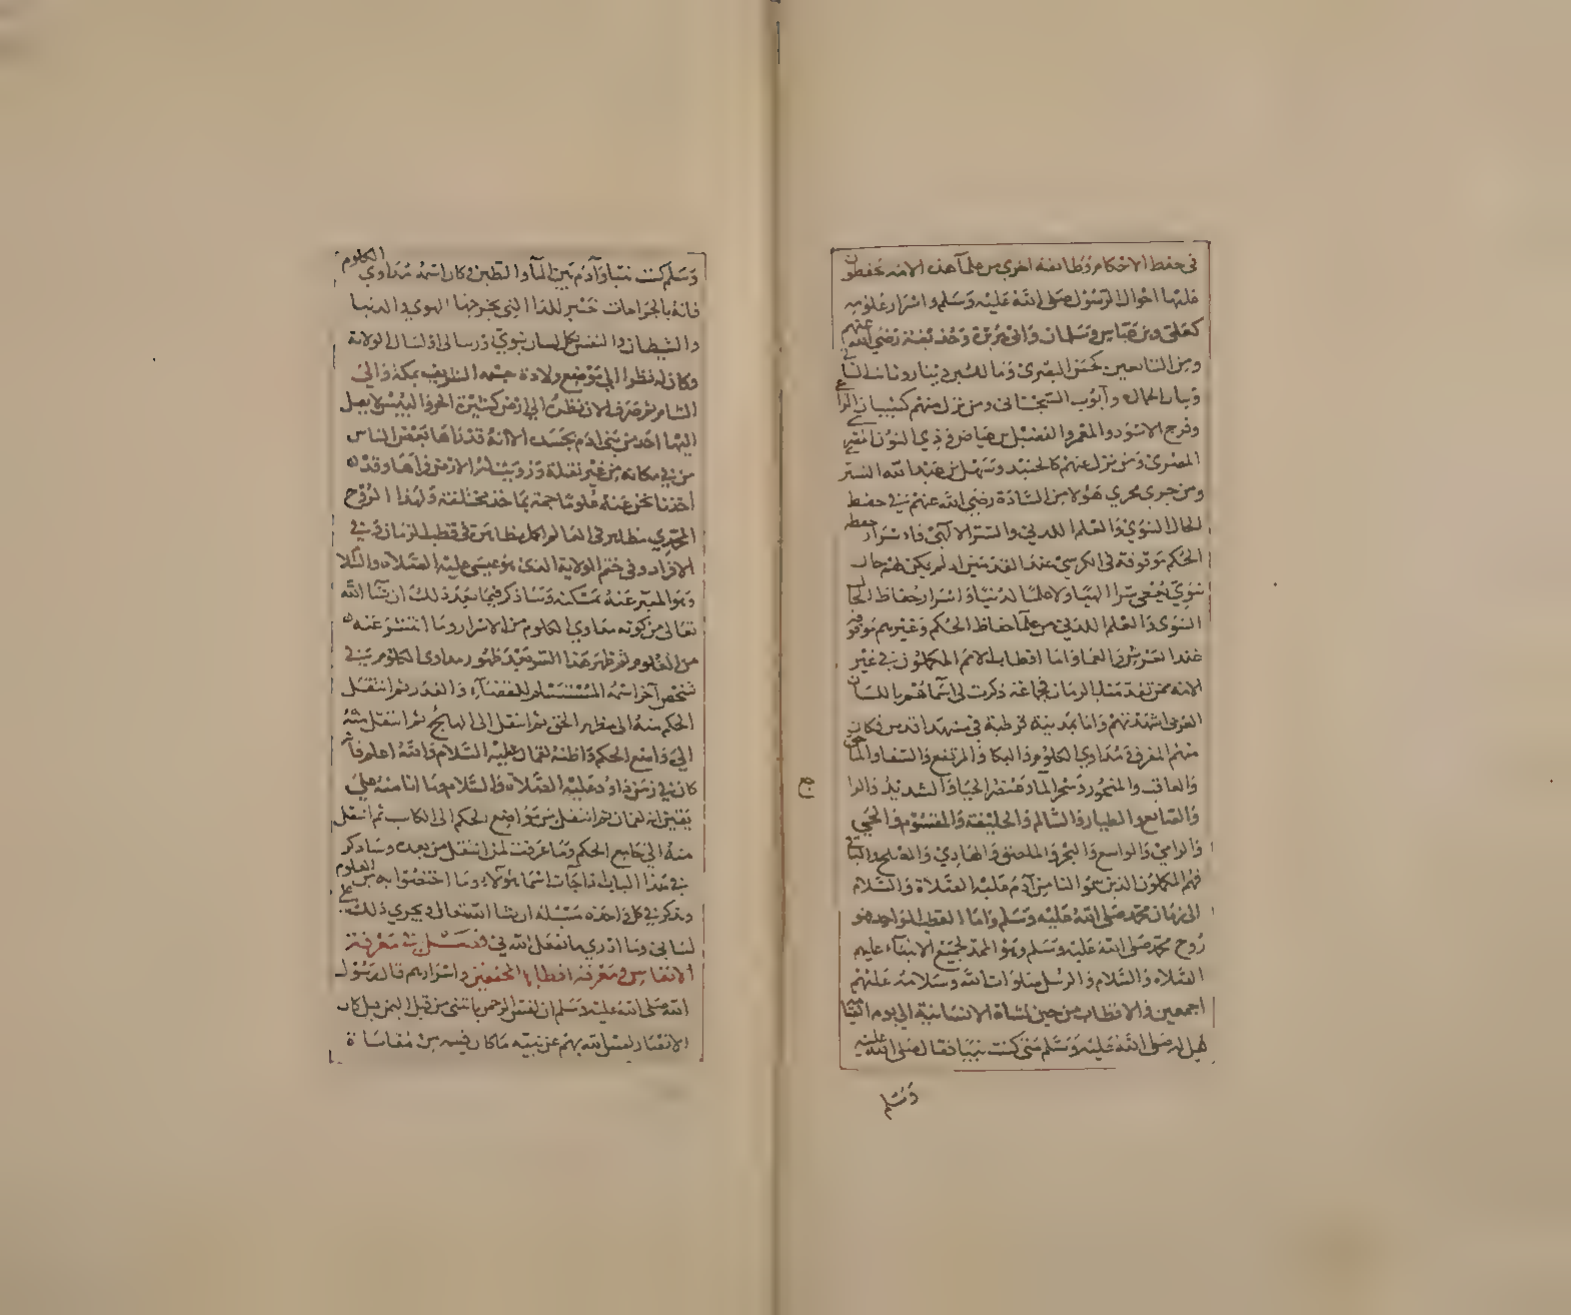 في حفظ الاحكام وطائفة اخرى من علما هذه الامة يحفظون
عليها احوال الرسول صلى الله عليه وسلم واسرار علومه
كعلي وبن عباس وسلمان وابي هريرة وحذيفة رضي الله عنهم
ومن التابعين كحسن البصري ومالك بن دينار وبنان
وايوب السختياني ومن نزل منهم كشيبان الراعي
وفرج الاسود والمعمر والفضيل بن عياض وذي النون
المصري ومن نزل عنهم كالجنيد وسهل بن عبد الله التستري
ومن جرى مجري هولا من السادة رضي الله عنهم في حفظ
الحال النبوي والعلم اللدني والسر الالهي فاسرار حفظه
الحكم موقوفة في الكرسي عند القدمين اذ لم يكن لهم حال
نبوي يعطي سرا الهيا ولا علما لدنيا واسرار حفاظ الحال
النبوي والعلم اللدني من علما حفاظ الحكم وغيرهم موقوفة
عند العرش والعما واما اقطاب الامم المكملون في غير
الامة ممن تقدمنا بالزمان فجماعة ذكرت لي اسماهم باللسان
العربي اشهدتهم وانا بمدينة قرطبة في مشهد اقدس فكان
منهم المفرق ومداوي الكلوم والبكا والمرتفع والشفا والماحق
والعاقب والمنحور وشجر الماء وعنصر الحياة والشديد والراجع
والصانع والطيار والسالم والخليفة والمقسوم والحي
والرامي والواسع والبحر والملصق والهادي والمصلح والباقي
فهم المكملون الذين سموا لنا من آدم عليه الصلاة والسلام
الى زمان محمد صلى الله عليه وسلم واما القطب الواحد فهو
روح محمد صلى الله عليه وسلم وهو الممد لجميع الانبياء عليهم
الصلاة والسلام والرسل صلوات الله وسلامه عليهم
اجمعين والاقطاب من حين النشاة الانسانية الى يوم القيامة
قيل له صلى الله عليه وسلم متى كنت نبيا فقال صلى الله عليه
وسلم
ج
وسلم كنت نبيا وآدم بين الماء والطين وكان اسمه مداوي الكلوم
فانه بالجراحات خبير للذا التي يخرجها الهوي والدنيا
والشيطان والنفس بكل لسان نبوي ورسالي او لسان الولاية
وكان له نظر الى موضع ولادة جسمه الشريف بمكة والى
الشام ثم صرف الان نظره الى ارض كثيرة الحر واليبس لا يصل
اليها احد من بني ادم بجسده الا انه قد راها بعض الناس
من في مكانه من غير نقلة وزويت له الارض فراها وقد
اخذنا نحن عنه علوما جمة بماخذ مختلفة ولهذا الروح
المحمدي مظاهر في العالم اكمل مظاهره في قطب الزمان وفي
الافراد وفي ختم الولاية الذي هو عيسى عليه الصلاة والسلام
وهو المعبر عنه بمسكنه وساذكر فيما بعد ذلك ان شا الله
تعالى من كونه مداوي الكلوم من الاسرار وما انتشر عنه
من العلوم ثم ظهر هذا السر بعد ظهور مداوي الكلوم في
شخص آخر اسمه المستسلم للقضاء والقدر ثم انتقل
الحكم منه الى مظهر الحق ثم انتقل الى الهايج ثم انتقل منه
الى واضع الحكم واظنه لقمان عليه السلام والله اعلم فانه
كان في زمن داود عليه الصلاة والسلام وما انا منه على
يقين انه لقمان ثم انتقل من واضع الحكم الى الكاسب ثم انتقل
منه الى جامع الحكم وما عرفت لمن انتقل من بعده وساذكر
في هذا الباب اذا جات اسما هولاء وما اختصوا به من العلوم
ونذكر في كل واحد مسئلة ان شا الله تعالى ويجري ذلك على
لساني وما ادري ما يفعل الله بي فصل في معرفة
الانفاس ومعرفة اقطابها المحققين واسرارهم قال رسول
الله صلى الله عليه وسلم ان نفس الرحمن ياتيني من قبل اليمن قيل كان
الانصار نفس الله بهم عن نبيه ما كان فيه من مقاساة